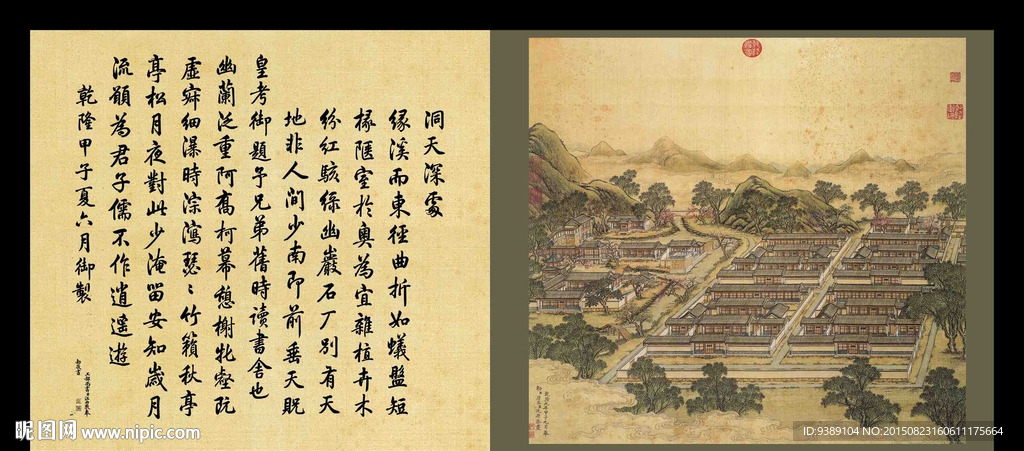 洞天深處
緣溪而東徑曲折如蟻盤短
椽陋室於奧為宜雜植卉木
紛紅駭綠幽巖石厂別有天
地非人間少南即前垂天貺
皇考御題予兄弟舊時讀書舍也
幽蘭泛重阿喬柯幕憩榭牝壑阮
虛寂細瀑時淙瀉瑟〻竹籟秋亭
亭松月夜對此少淹留安知歲月
流願為君子儒不作逍遙遊
乾隆甲子夏六月御製
昵图网 www.nipic.com
ID:9389104 NO:20150823160611175664